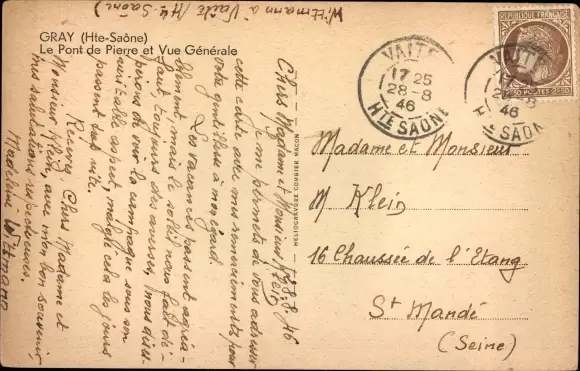 GRAY (Hte-Saône)
Le Pont de Pierre et Vue Générale
Wittmann à Vaite (Hte-Saône)
28.8.46
Chers Madame et Monsieur Klein
Je me permets de vous adresser
cette carte avec mes remerciements pour
votre gentillesse à mon égard.
Les vacances passent agréa-
blement, mais le soleil nous fait dé-
faut, toujours des averses, nous déses-
pérons de voir la campagne sous son
aspect, malgré cela les jours
passent vite.
Recevez Chers Madame et
Monsieur Klein, avec mon bon souvenir,
mes salutations respectueuses.
Madeleine Wittmann
VAITE
17 25
28-8
46
HTE SAONE
VAITE
17
28-8
46
HTE SAON
REPUBLIQUE FRANÇAISE
2F50 POSTES 2F50
Madame et Monsieur
M Klein
16 Chaussée de l'Etang
St Mandé
(Seine)